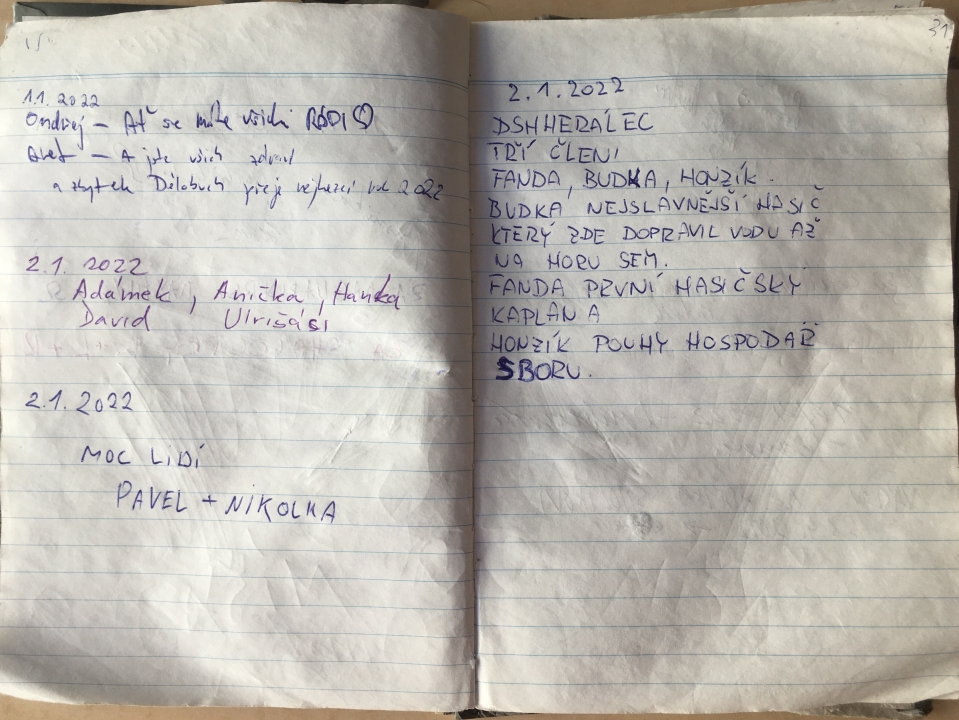 1.1. 2022
Ondrej – Ať se máte všichi RÁDI
– A jste všich zdraví
a zbytek přeje nejhezčí rok 2022
2.1. 2022
Adámek, Anička, Hanka
David Ulrišásí
2.1. 2022
MOC LIDÍ
PAVEL + NIKOLKA
31
2.1.2022
DSHHERÁLEC
TŘÍ ČLENI
FANDA, BUDKA, HONZÍK.
BUDKA NEJSLAVNĚJŠÍ HASIČ
KTERÝ ZDE DOPRAVIL VODU AŽ
NA HORU SEM.
FANDA PRVNÍ HASIČSKÝ
KAPLAN A
HONZÍK POUHÝ HOSPODÁŘ
SBORU.